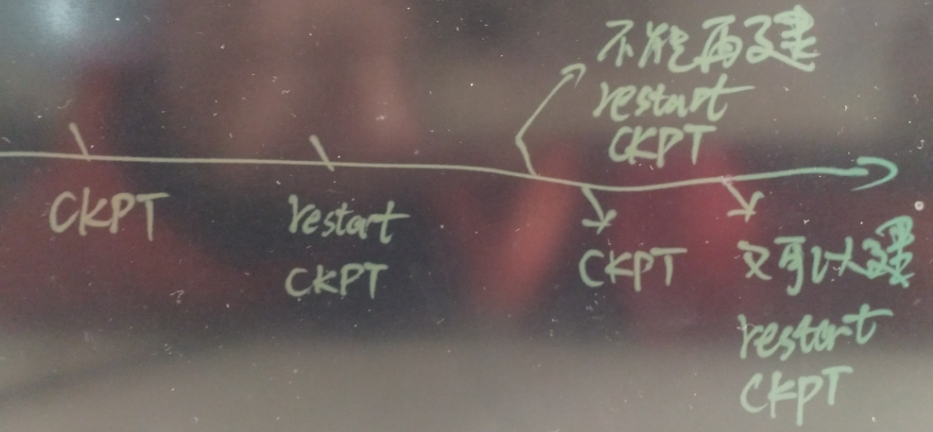 CKPT
restart
CKPT
不能再建
restart
CKPT
CKPT
又可以建
restart
CKPT